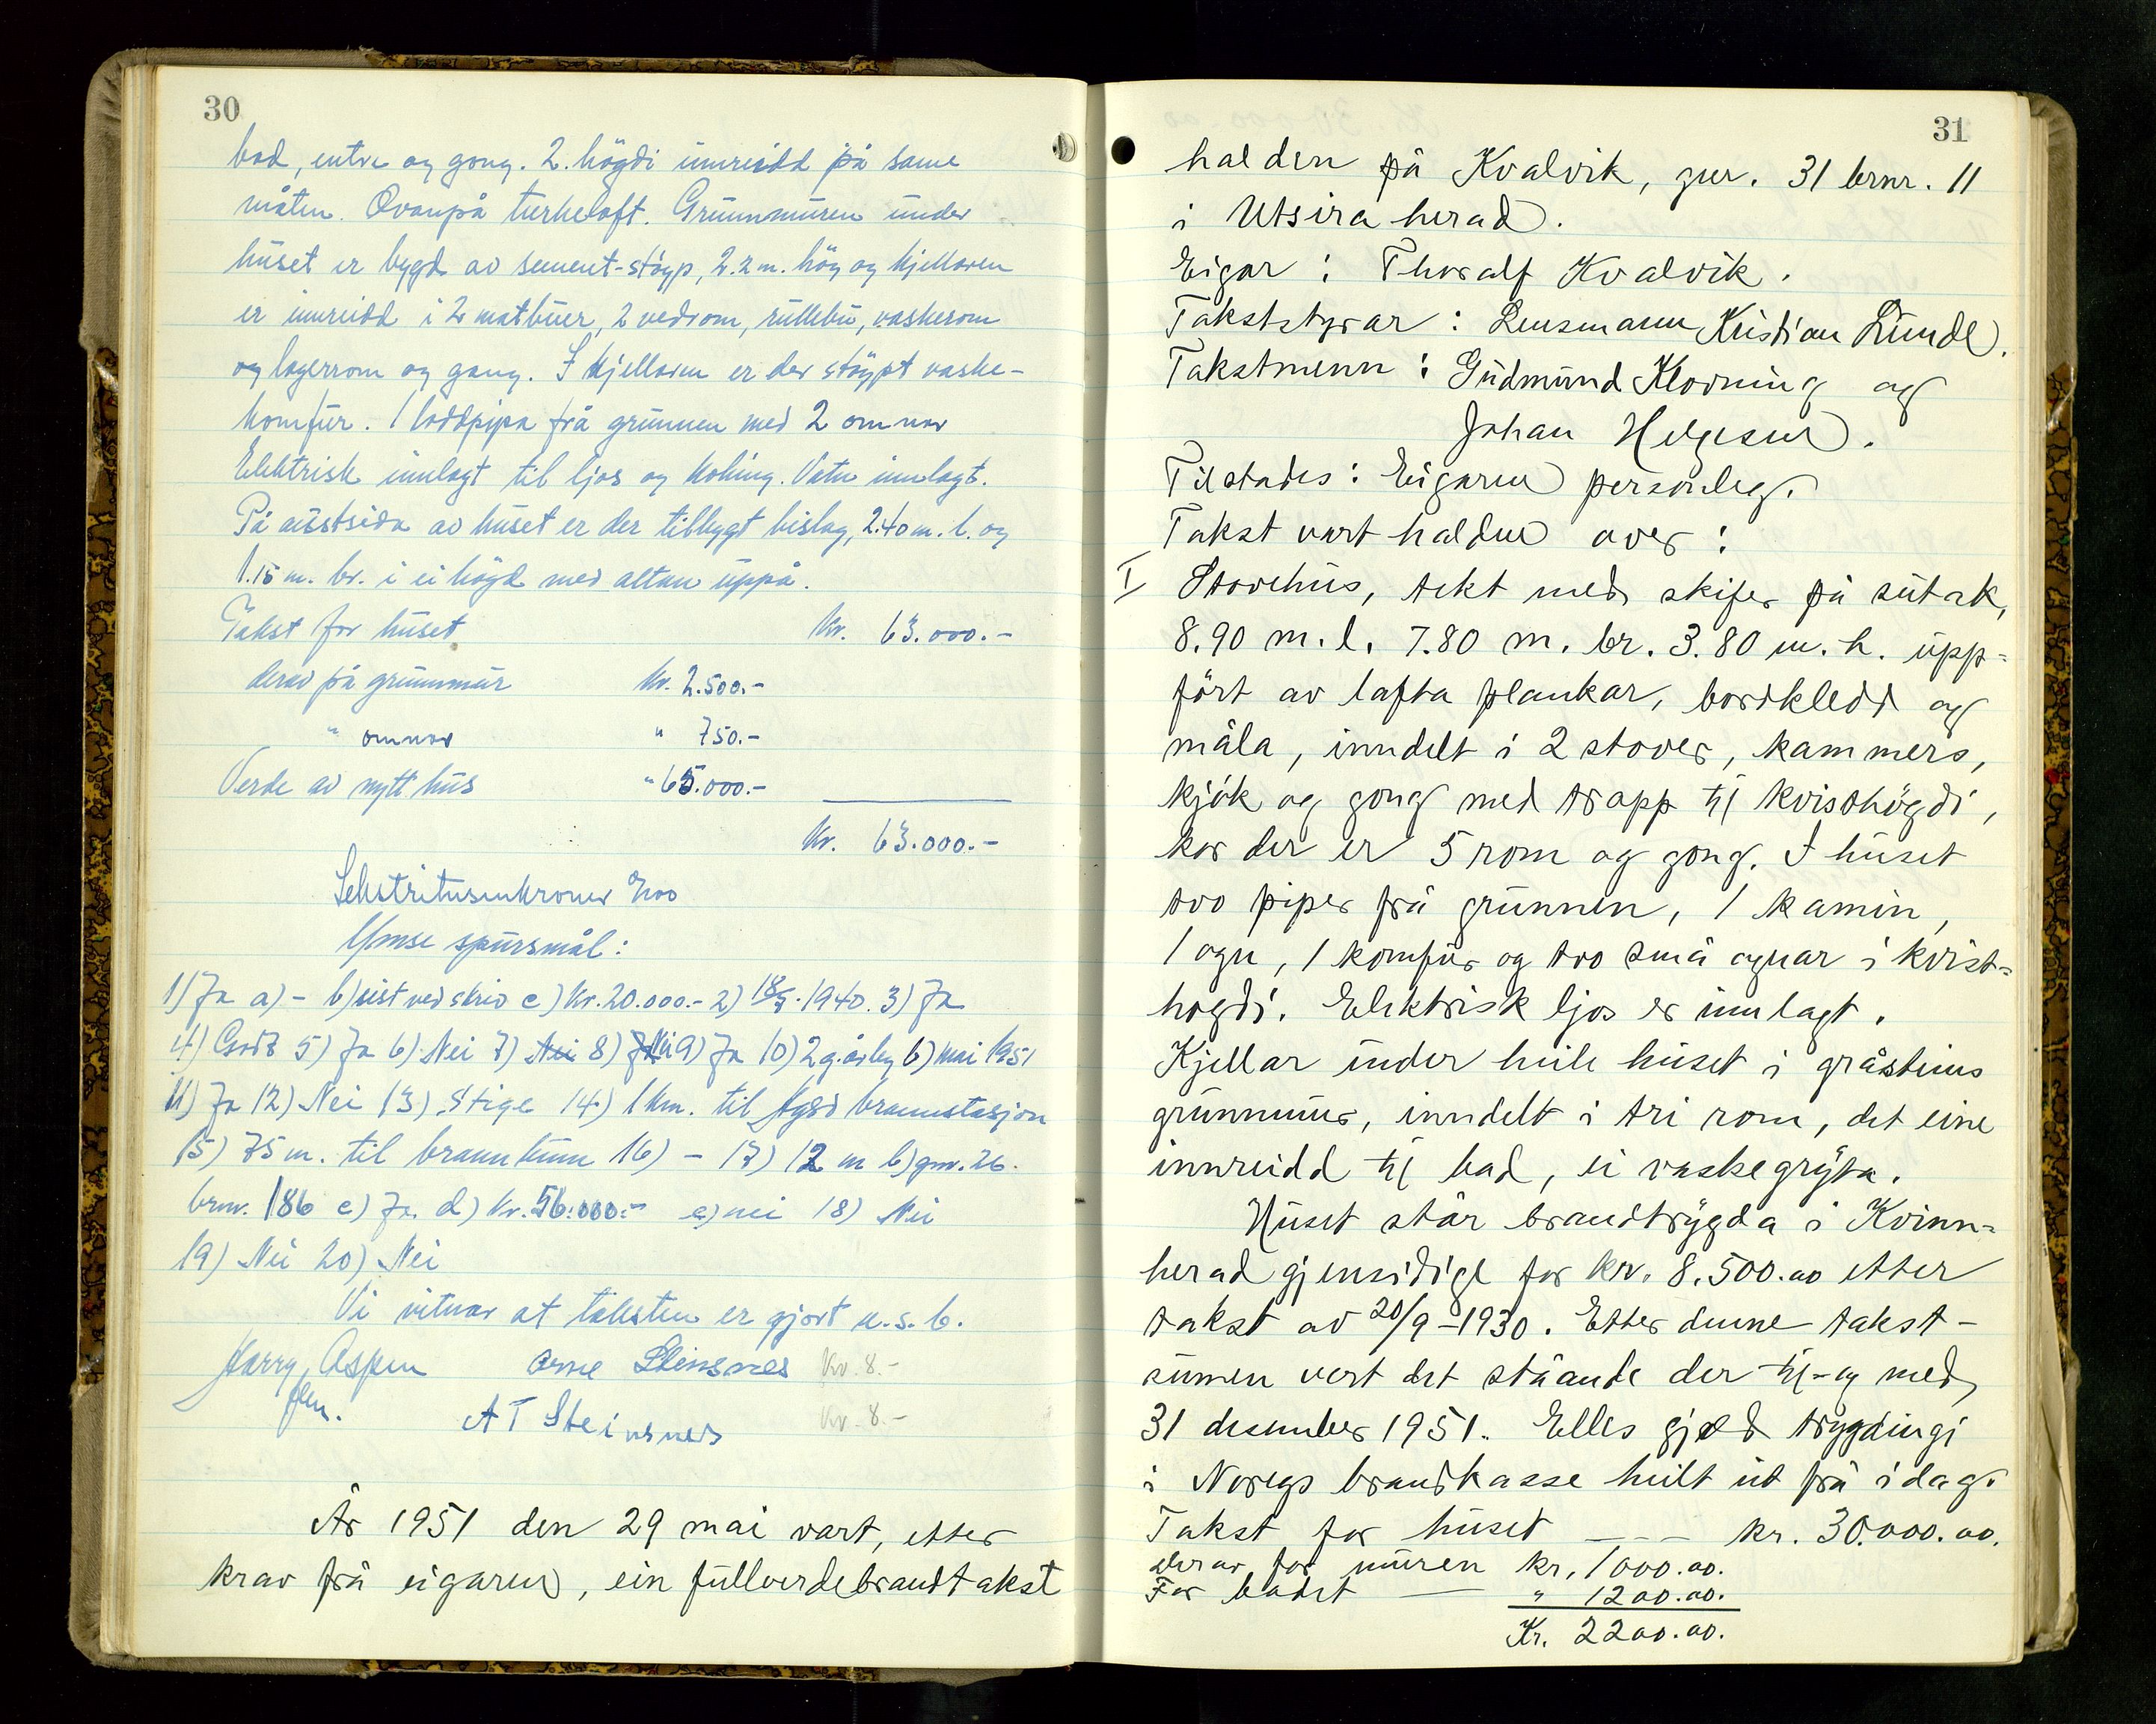 30
bad, entre og gong. 2. högdi innreidd på same
måten. Ovanpå turkeloft. Grunnmuren under
huset er bygd av sement-stöyp, 2.2 m. hög og kjellaren
er innreidd i 2 matbuer, 2 vedrom, rullebu, vaskerom
og lagerrom og gang. I kjellaren er der stöypt vaske-
komfur. 1 loddpipa frå grunnen med 2 omnar
Elektrisk innlagt til ljos og koking. Vatn innlagt.
På austsida av huset er der tilbygt bislag, 2.40 m. l. og
1.15 m. br. i ei högd med altan uppå.
Takst for huset kr. 63.000.-
derav på grunnmur kr. 2.500.-
" omnar " 750.-
Verde av nytt hus " 65.000.-
kr. 63.000.-
Sekstritusenkroner
Ymse spursmål:
1) Ja a) - b) sist ved skriv c) kr. 20.000.- 2) 1940. 3) Ja
4) Godt 5) Ja 6) Nei 7) Nei 8) 9) Ja 10) 2 g. årleg b) mai 1951
11) Ja 12) Nei 13) Stige 14) 1 km. til brannstasjon
15) 75 m. til brannkum 16) - 17) 12 m b) gnr. 26.
brnr. 186 c) Ja d) kr. 56.000.- e) nei 18) Nei
19) Nei 20) Nei
Vi vitnar at taksten er gjort u. s. b.
Harry Aspen Arne Steinsnes Kr. 8.-
flm.
A T Steinsnes Kr. 8.-
År 1951 den 29 mai vart, etter
krav frå eigaren, ein fullverdebrandtakst
31
halden på Kvalvik, gnr. 31 brnr. 11
i Utsira herad.
Eigar: Thoralf Kvalvik.
Takststyrar: Lensmann Kristian Lunde.
Takstmenn: Gudmund Klovning og
Johan Helgesen.
Tilstades: Eigaren personleg.
Takst vart halden over:
I Stovehus, tekt med skifer på sutak,
8.90 m. l. 7.80 m. br. 3.80 m. h. upp=
fört av lafta plankar, bordkledd og
måla, inndelt i 2 stover, kammers,
kjök og gong med trapp til kvisthögdi,
kor der er 5 rom og gong. I huset
tvo piper frå grunnen, 1 kamin,
1 ogn, 1 komfur og tvo små ognar i kvist=
hogdi. Elektrisk ljos er innlagt.
Kjellar under heile huset i gråsteins
grunnmur, inndelt i tri rom, det eine
innreidd til bad, ei vaskegryta.
Huset står brandtrygda i Kvinn=
herad gjensidige for kr. 8.500.00 etter
takst av 20/9-1930. Etter denne takst-
sumen vert det ståande der til-og med
31 desember 1951. Elles gjeld trygdingi
i Noregs brandkasse heilt ut frå idag.
Takst for huset --- kr. 30.000.00.
derav for muren kr. 1000.00.
For badet — " 1200.00.
Kr. 2200.00.